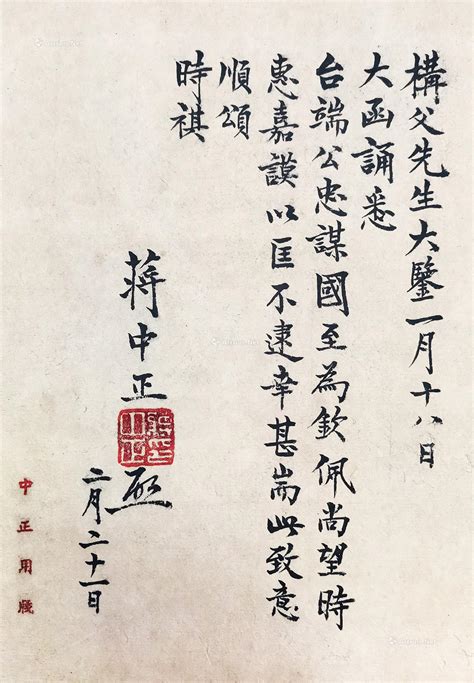 構父先生大鑒一月十八日
大函誦悉
台端公忠謀國至為欽佩尚望時
惠嘉謨以匡不逮幸甚耑此致意
順頌
時祺
蔣中正
啟
二月二十一日
中正用牋